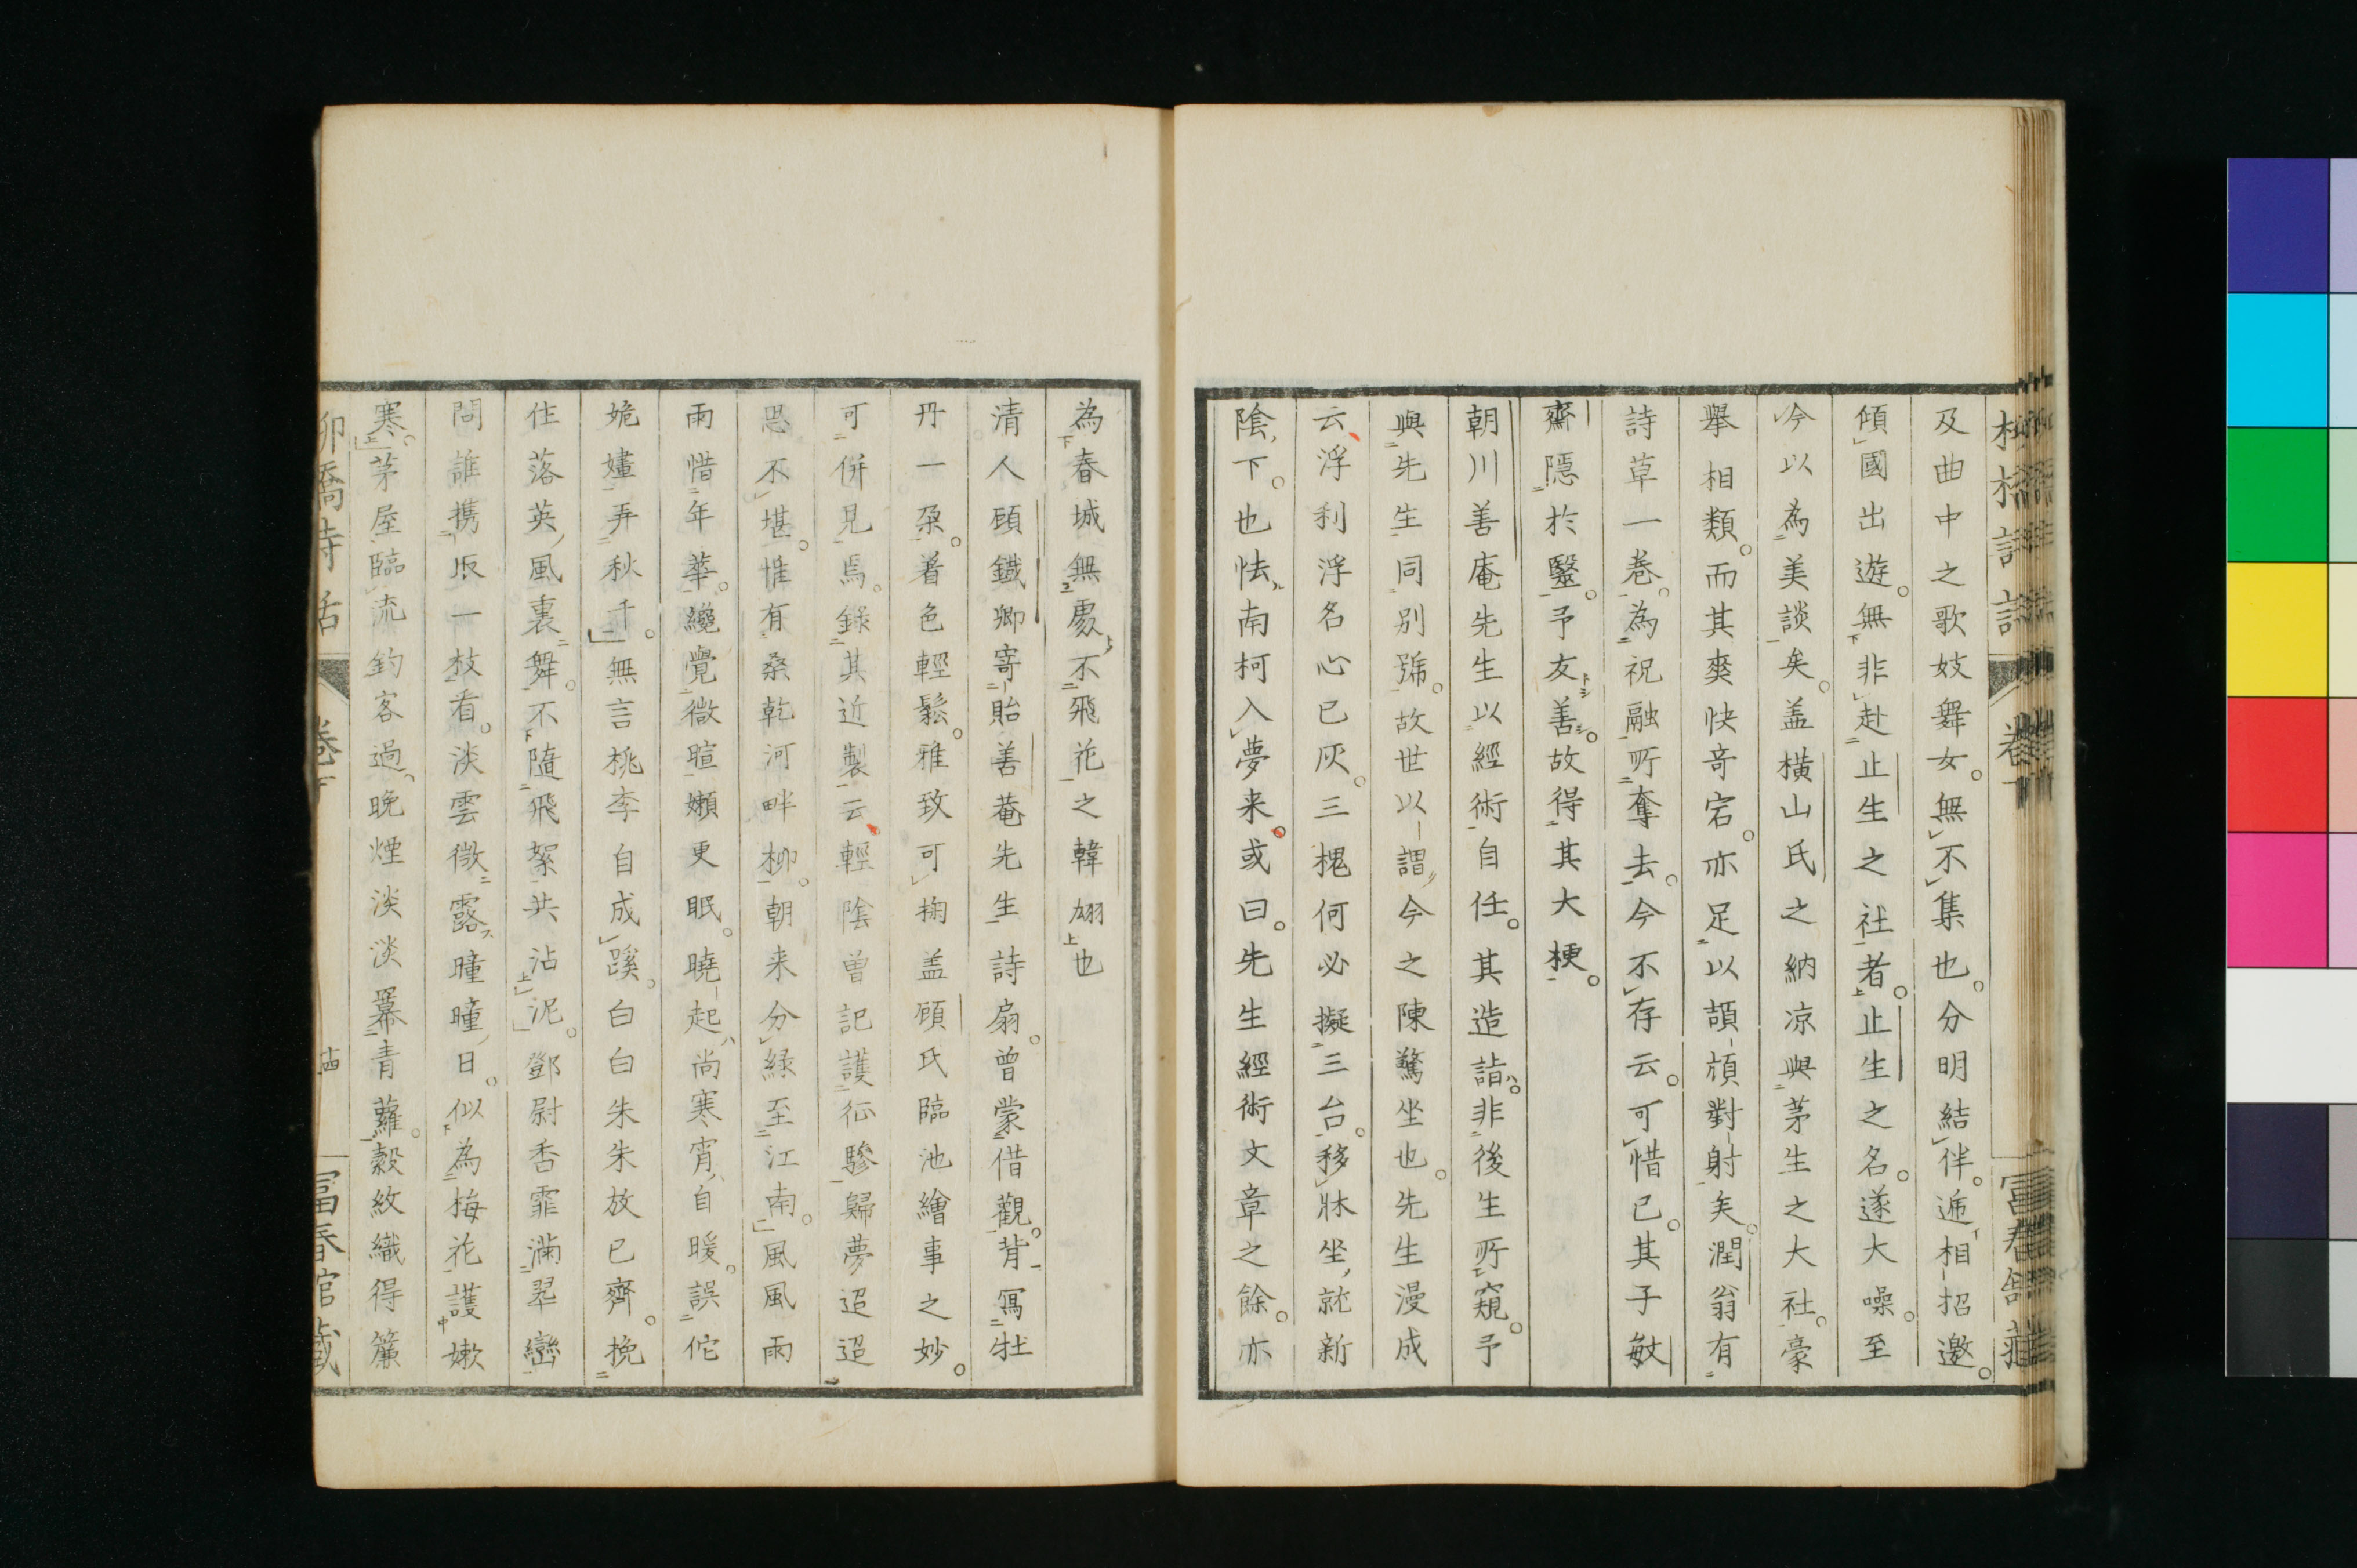 及曲中之歌妓舞女。無不集也。分明結伴。遞相招邀。
傾國出遊。無非赴止生之社者。止生之名。遂大噪。至
今以為美談矣。盖橫山氏之納凉與茅生之大社。豪
擧相類。而其爽快竒宕。亦足以頡頏對射矣。潤翁有
詩草一巻。為祝融所奪去。今不存云。可惜已。其子敏
齋隱於毉。予友善。故得其大梗。
朝川善庵先生以經術自任。其造詣。非後生所窺。予
與先生同別號。故世以謂今之陳驚坐也。先生漫成
云浮利浮名心已灰。三槐何必擬三台。移牀坐就新
陰下。也怯南柯入夢来。或曰。先生經術文章之餘。亦
為春城無處不飛花之韓翃也
清人頋鐵卿寄貽善菴先生詩扇。曾蒙借觀。背冩牡
丹一朶。着色輕鬆。雅致可掬盖頋氏臨池繪事之妙。
可併見焉。錄其近製云輕陰曾記護征驂歸夢迢迢
思不堪。惟有桑乾河畔柳。朝来分綠至江南。風風雨
雨惜年華。纔覺微暄嬾更眠。曉起尚寒宵自暖。誤佗
姽嫿弄秋千。無言桃李自成蹊。白白朱朱放已齊。挽
住落英風裏舞。不隨飛絮共沾泥。鄧尉香霏滿翠巒
問誰携取一枝看。淡雲微露曈曈日。似為梅花護嫩
寒。茅屋臨流釣客過。晩煙淡淡羃青蘿。縠紋織得簾
柳橋詩話 巻下 十四 冨春館藏